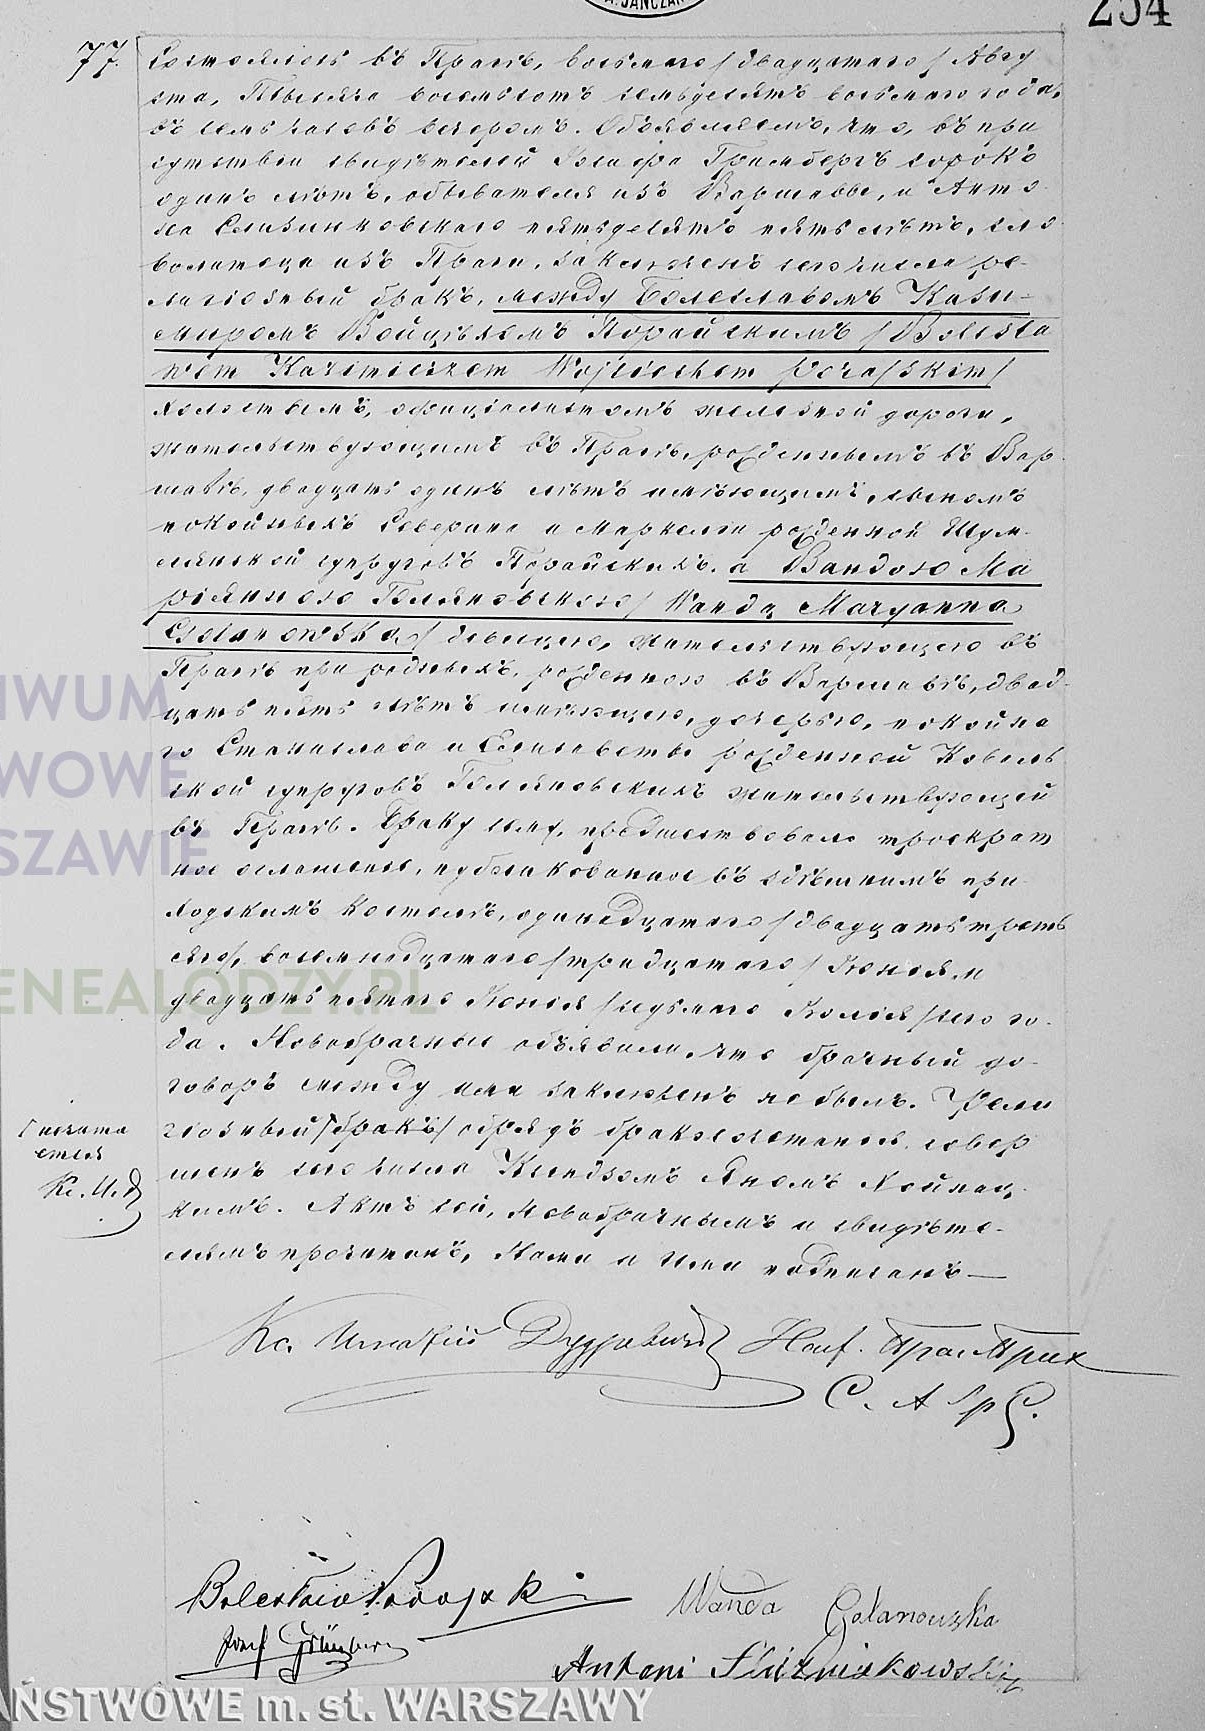 A. JANCZAK
254
77. Состоялось въ Прагѣ, восьмаго /двадцатаго/ Авгу
ста, Тысяча восемьсотъ семьдесятъ восьмаго года,
въ семь часовъ вечеромъ. Объявляемъ, что, въ при
сутствіи свидѣтелей Іосифа Гринбергъ сорокъ
одинъ лѣтъ, обывателя изъ Варшавы, и Анто
на Служниковскаго пятьдесятъ пять лѣтъ,
изъ Праги, заключенъ сего числа ре-
лигіозный бракъ, между Болеславомъ Кази-
миромъ Войцѣхомъ Порайскимъ /Bolesła
wem Kazimierzem Wojciechem Porajskim/
холостымъ, оффиціалистомъ желѣзной дороги,
жительствующимъ въ Прагѣ, рожденнымъ въ Вар-
шавѣ, двадцать одинъ лѣтъ имѣющимъ, сыномъ
покойныхъ Северина и Маркели рожденной Шум-
лянской супруговъ Порайскихъ. а Вандою Ма
ріянною Голяновскою /Wandą Maryanną
Golanowską/ дѣвицею, жительствующею въ
Прагѣ при родныхъ, рожденною въ Варшавѣ, двад-
цать пять лѣтъ имѣющею, дочерью, покойна
го Станислава и Елисаветы рожденной Коваль
ской супруговъ Голяновскихъ жительствующей
въ Прагѣ. Браку сему, предшествовало троекрат
ное оглашеніе, публикованное въ здѣшнимъ при-
ходскимъ костелѣ, одинадцатаго /двадцать треть
яго/, восемнадцатаго /тридцатаго/ Іюня и
двадцать пятаго Іюня /седьмаго Іюля/ сего го-
да. Новобрачные объявили, что брачный до-
говоръ между ими заключенъ не былъ. Рели
гіозный /бракъ/ обрядъ бракосочетанія, совер
шенъ сего числа Ксендзомъ Яномъ Хойнац
кимъ. Актъ сей, Новобрачнымъ и свидѣте-
лямъ прочитанъ, Нами и Ими подписанъ—
считается
Кс. И. Д
Кс. Игнатій Дудревичъ Наст. Праг. Прих
С. А Гр С.
Bolesław Porajski Wanda Golanowska
Józef Grünberg
Antoni Służnikowski
IWUM
WOWE
SZAWIE
ENEALODZY.PL
AŃSTWOWE m. st. WARSZAWY